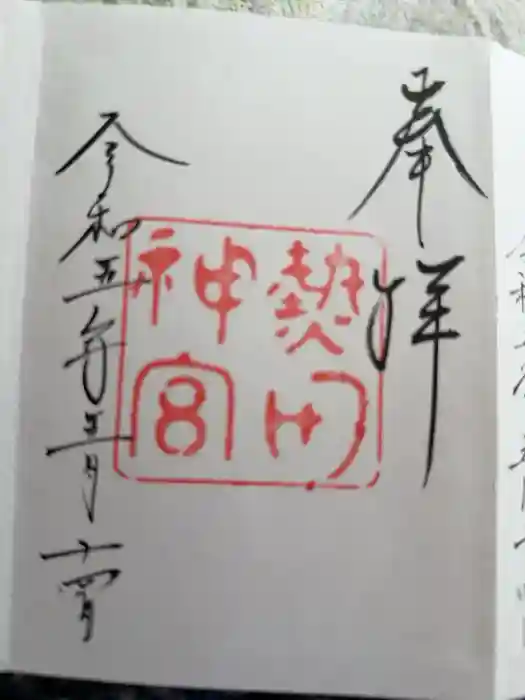 奉拝
熱田
神宮
令和五年五月十四日